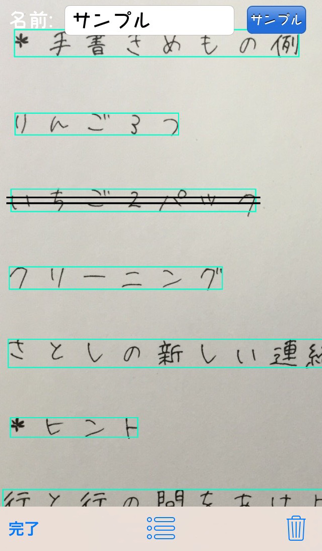 名前: サンプル サンプル
* 手書きめもの例
りんご3つ
いちご2パック
クリーニング
さとしの新しい連絡
* ヒント
行と行の間をあけ
完了